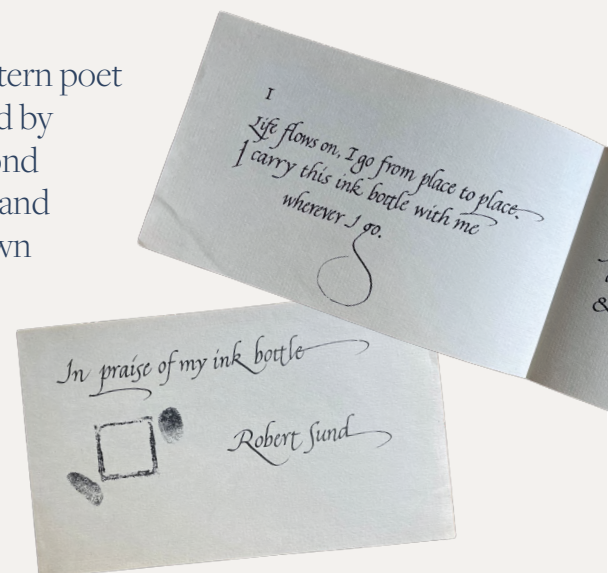 tern poet
d by
ond
and
wn
I
Life flows on, I go from place to place.
I carry this ink bottle with me
wherever I go.
&
In praise of my ink bottle
Robert Sund